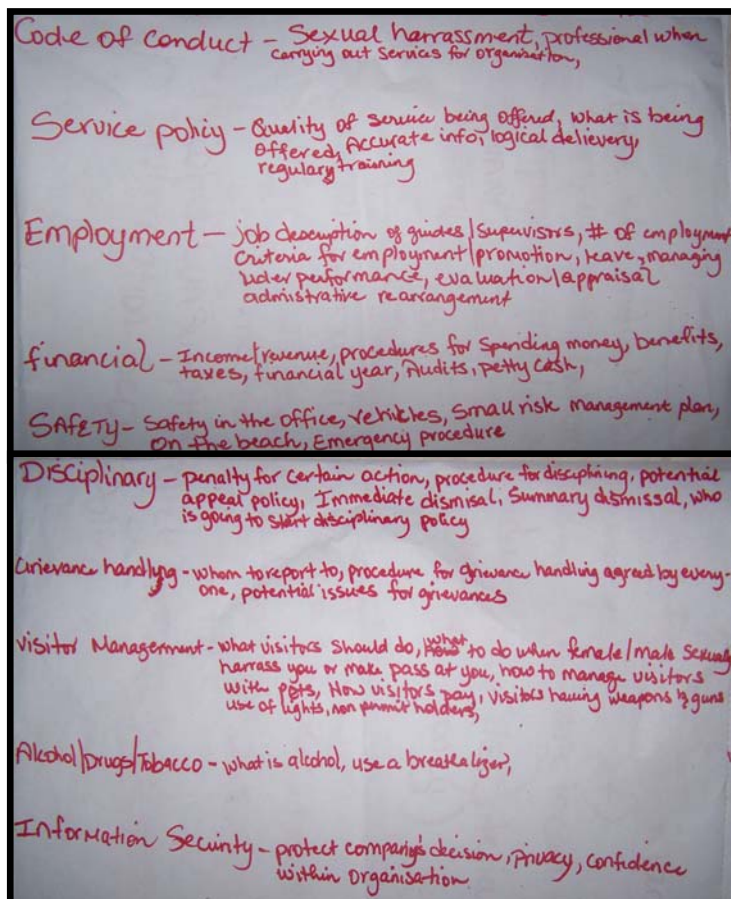 Code of conduct - Sexual harrassment, professional when
carrying out services for organisation,
Service policy - Quality of service being offered, what is being
offered, Accurate info, logical delievery,
regulary training
Employment - job description of guides/supervisors, # of employment
Criteria for employment/promotion, leave, managing
under performance, evaluation/appraisal
admistrative rearrangement
financial - Income/revenue, procedures for spending money, benefits,
taxes, financial year, Audits, petty cash,
SAFETY - Safety in the office, vehicles, Small risk management plan,
On the beach, Emergency procedure
Disciplinary - penalty for certain action, procedure for disciplining, potential
appeal policy, Immediate dismisal, Summary dismissal, who
is going to start disciplinary policy
Grievance handlyng - whom to report to, procedure for grievance handling agreed by every-
one, potential issues for grievances
Visitor Management - what visitors should do, what to do when female/male sexually
harrass you or make pass at you, how to manage visitors
with pets, How visitors pay, visitors having weapons & guns
use of lights, non permit holders,
Alcohol/Drugs/Tobacco - what is alcohol, use a breathalizer,
Information Security - protect company's decision, privacy, confidence
within organisation